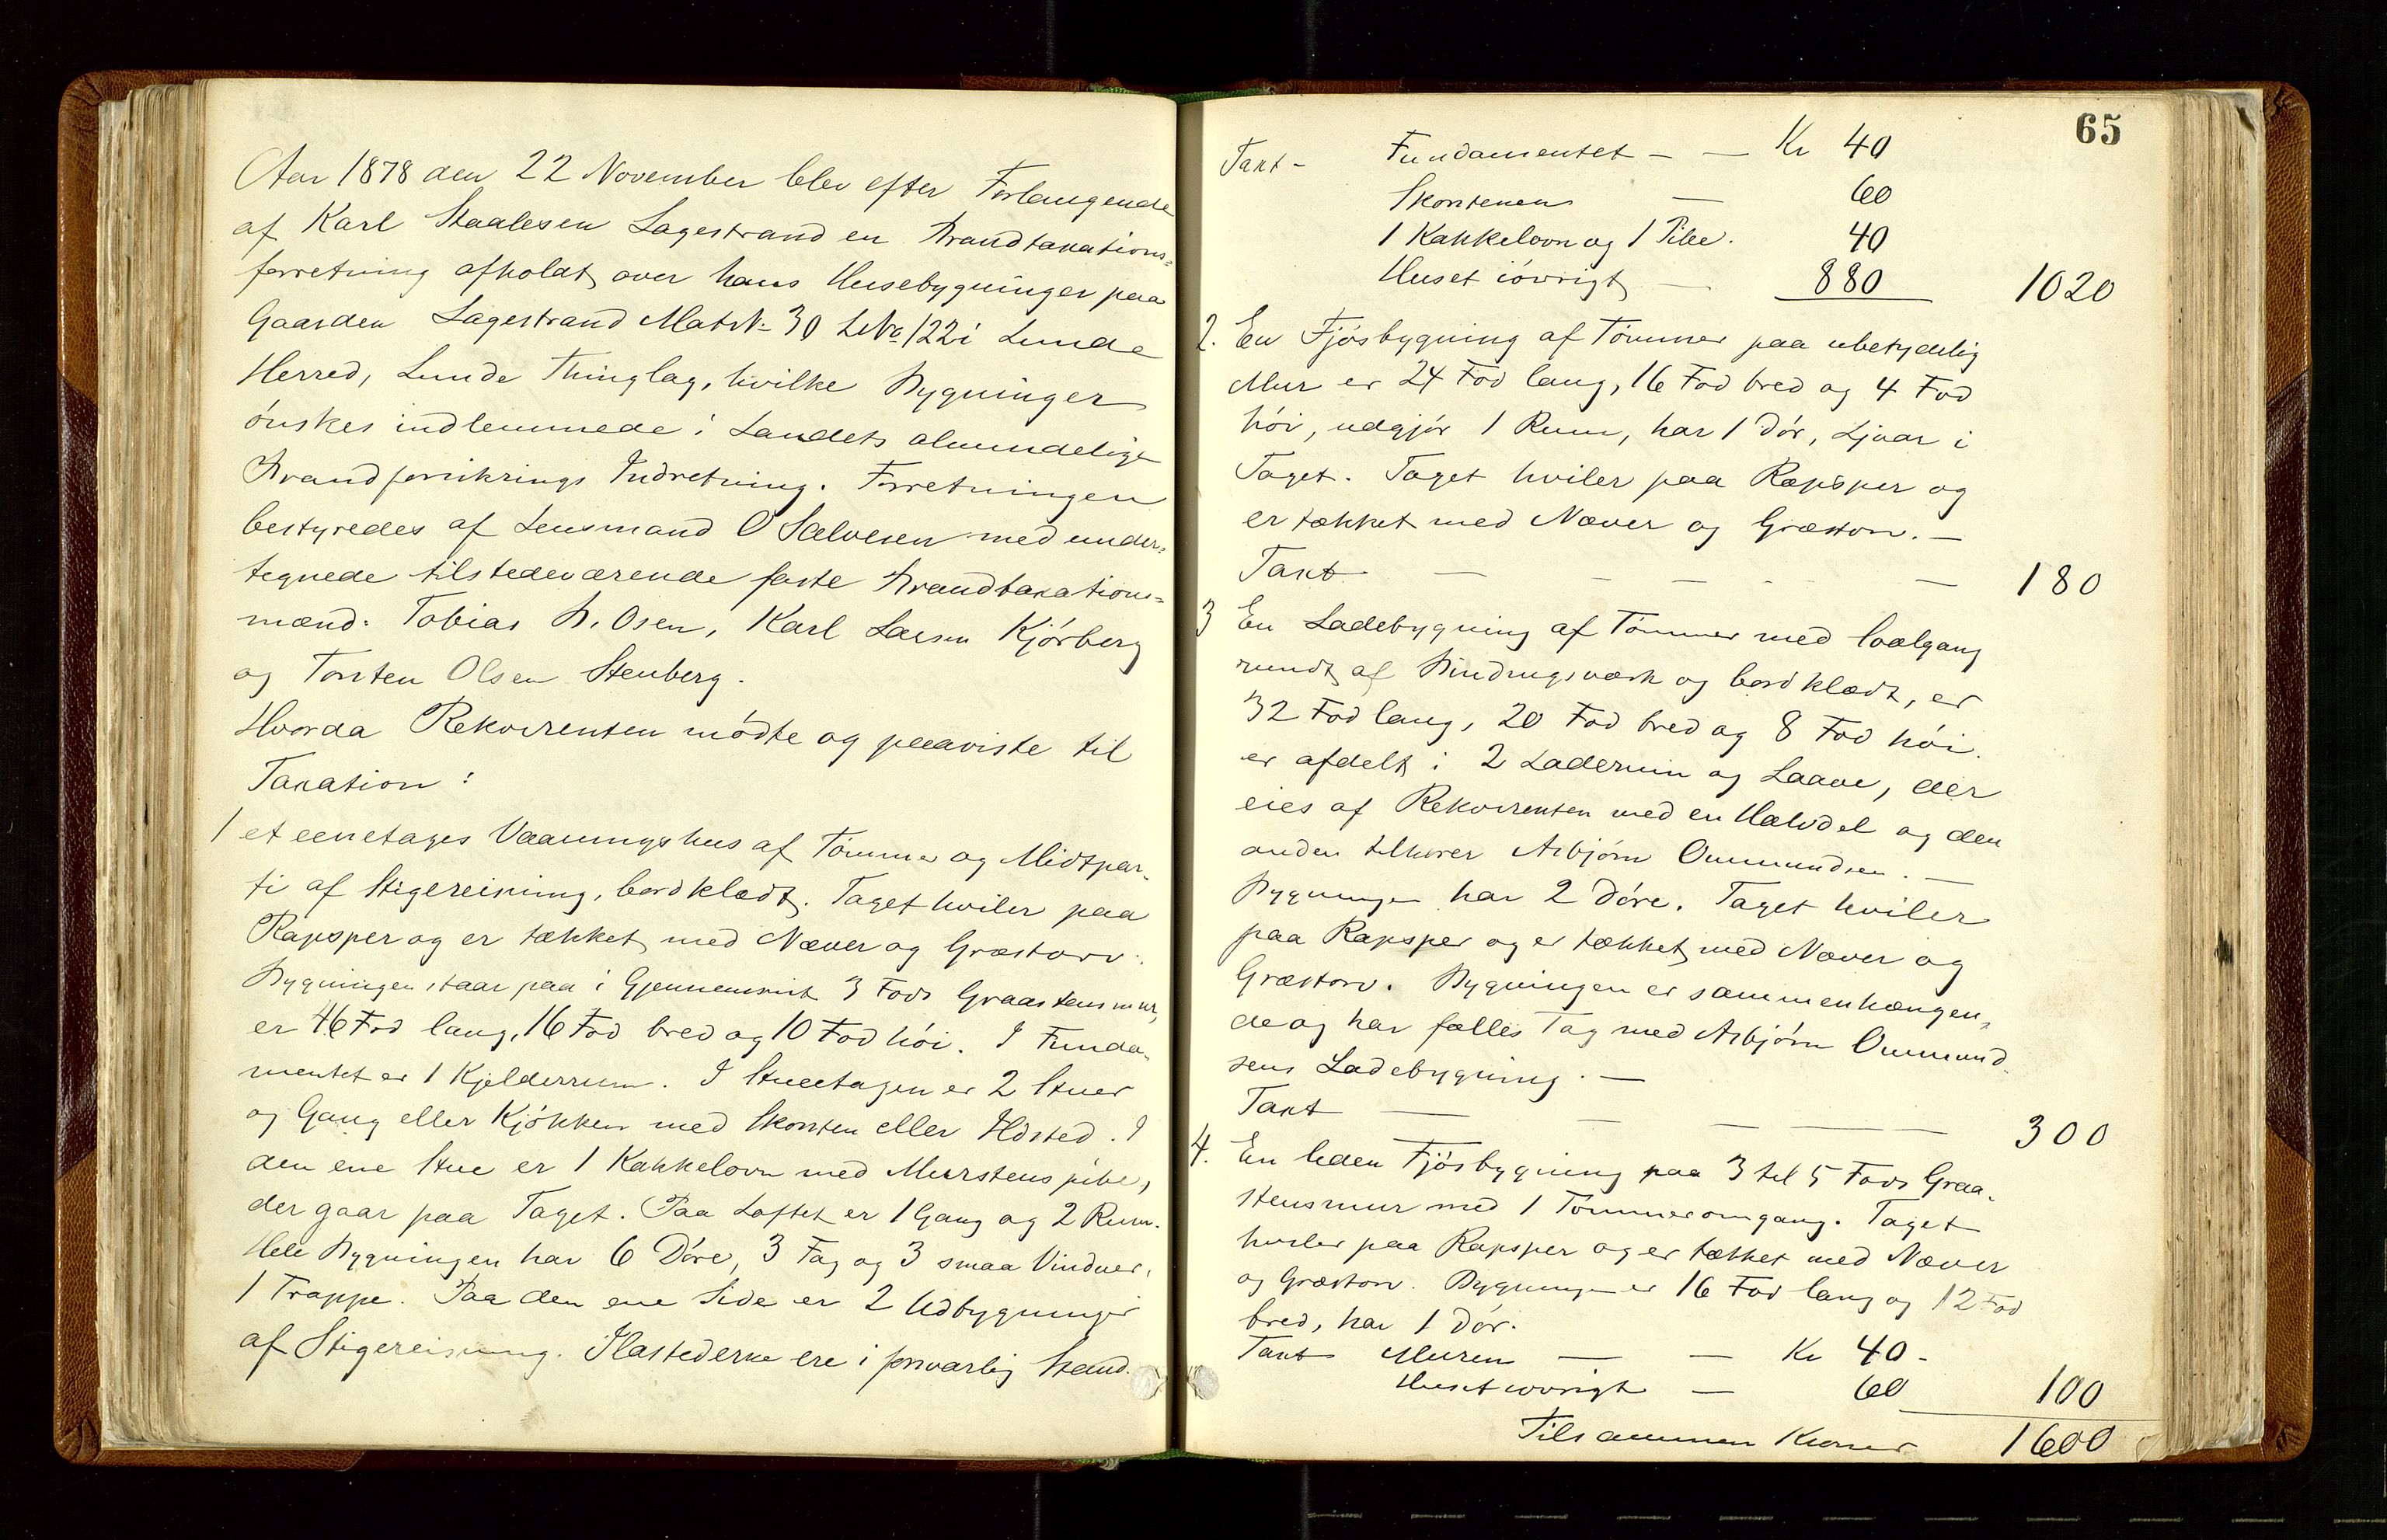 Aar 1878 den 22 November blev efter Forlangende
af Karl Staalesen Lagestrand en Brandtaxations=
forretning afholdt over hans Husebygninger paa
Gaarden Lagestrand Matr N: 30 L No 122 i Lunde
Herred, Lunde Thinglag, hvilke Bygninger
ønskes indlemmede i Landets almindelige
Brandforsikrings Indretning. Forretningen
bestyredes af Lensmand O Sælvesen med under=
tegnede tilstedeværende faste Brandtaxations=
mænd: Tobias B. Osen, Karl Larsen Kjørberg
og Torsten Olsen Stenberg.
Hvorda Rekvirenten mødte og paaviste til
Taxation:
1 et eenetages Vaaningshus af Tømmer og Midtpar-
ti af Stigereisning, bordklædt. Taget hviler paa
Rapsper og er tækket med Næver og Græstorv.
Bygningen staar paa i Gjennemsnit 3 Fods Graastensmur,
er 46 Fod lang, 16 Fod bred og 10 Fod høi. I Funda-
mentet er 1 Kjelderrum. I Stueetagen er 2 Stuer
og Gang eller Kjøkken med Skorsten eller Ildsted. I
den ene Stue er 1 Kakkelovn med Murstenspibe,
der gaar paa Taget. Paa Loftet er 1 Gang og 2 Rum.
Hele Bygningen har 6 Døre, 3 Fag og 3 smaa Vinduer,
1 Trappe. Paa den ene Side er 2 Udbygninger
af Stigereisning. Ilastederne ere i forsvarlig Stand.
65
Taxt - Fundamentet - — Kr 40
Skorstenen — 60
1 Kakkelovn og 1 Pibe. 40
Huset iøvrigt — 880 1020
2. En Fjøsbygning af Tømmer paa ubetydelig
Mur er 24 Fod lang, 16 Fod bred og 4 Fod
høi, udgjør 1 Rum, har 1 Dør, Ljaar i
Taget. Taget hviler paa Rapsper og
er tækket med Næver og Græstorv. —
Taxt — - — - — 180
3 En Ladebygning af Tømmer med Svalgang
rundt af Bindingsværk og bordklædt, er
32 Fod lang, 20 Fod bred og 8 Fod høi.
er afdelt i 2 Laderum og Laave, der
eies af Rekvirenten med en Halvdel og den
anden tilhører Asbjørn Ommundsen. —
Bygningen har 2 Døre. Taget hviler
paa Rapsper og er tækket med Næver og
Græstorv. Bygningen er sammenhængen=
de og har fælles Tag med Asbjørn Ommund-
sens Ladebygning. —
Taxt — — — — 300
4. En liden Fjøsbygning paa 3 til 5 Fods Graa-
stensmur med 1 Tømmeromgang. Taget
hviler paa Rapsper og er tækket med Næver
og Græstorv. Bygningen er 16 Fod lang og 12 Fod
bred, har 1 Dør.
Taxt Muren — — Kr 40 -
Huset iøvrigt — 60 100
Tilsammen Kroner 1600